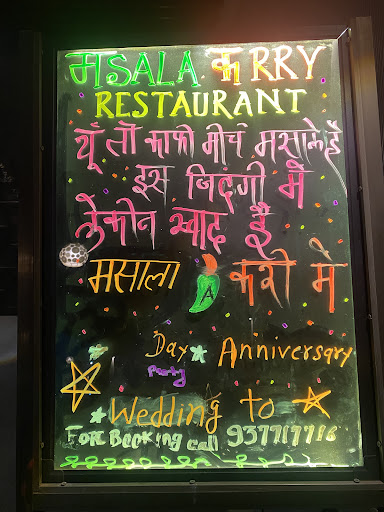 मSALA कRRY
RESTAURANT
यूँ तो काफी मीर्च मसाले हैं
इस जिदंगी में
लेकीन स्वाद है
मसाला A करी में
Day Anniversary
Party
Wedding to
FOR Booking call 937717716